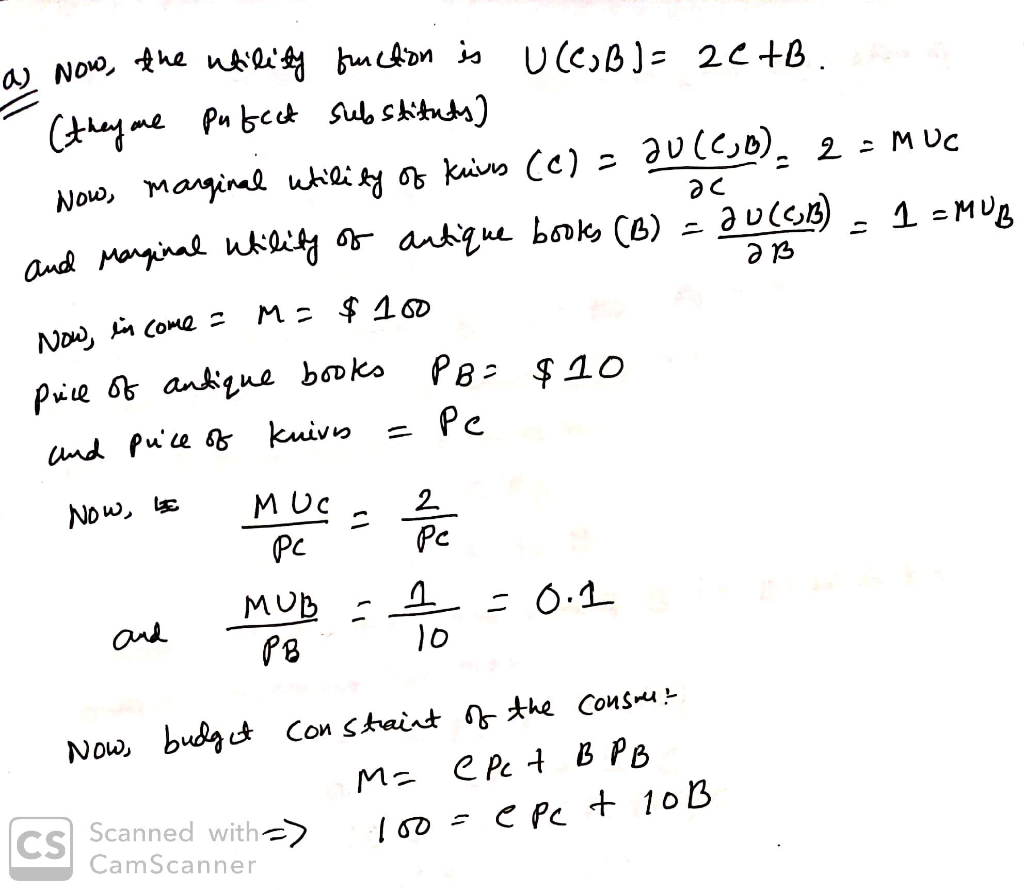 a) Now, the utility function is U(C,B) = 2C + B.
(they are perfect substituts)
Now, marginal utility of knives (C) = ∂U(C,B)/∂C = 2 = MUC
and marginal utility of antique books (B) = ∂U(C,B)/∂B = 1 = MUB
Now, income = M = $ 100
Price of antique books PB = $ 10
and price of knives = Pc
Now, MUC/PC = 2/Pc
and MUB/PB = 1/10 = 0.1
Now, budget constraint of the
M = C Pc + B PB
=> 100 = C Pc + 10B
CS Scanned with
CamScanner